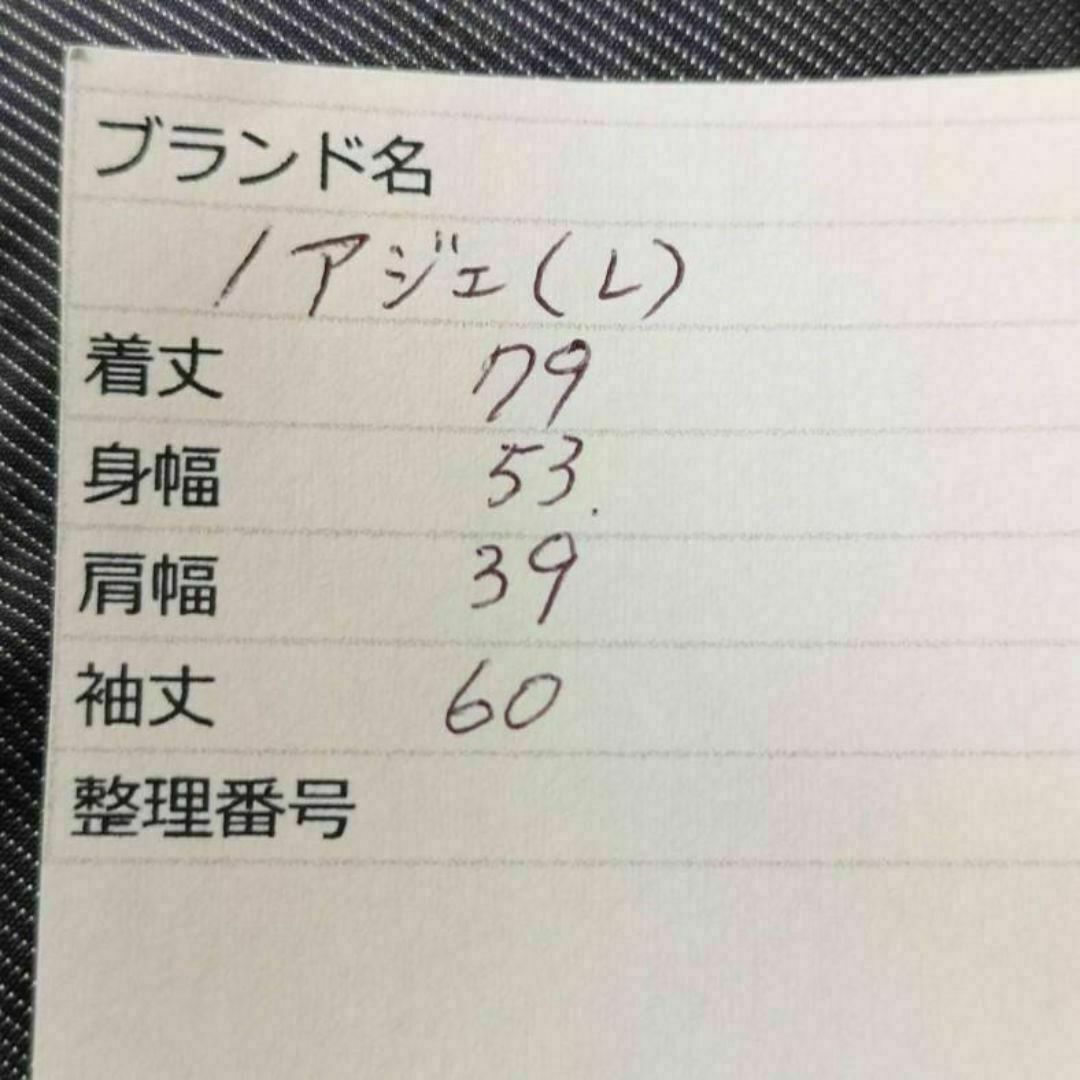 ブランド名
ノアジェ(L)
着丈 79
身幅 53.
肩幅 39
袖丈 60
整理番号